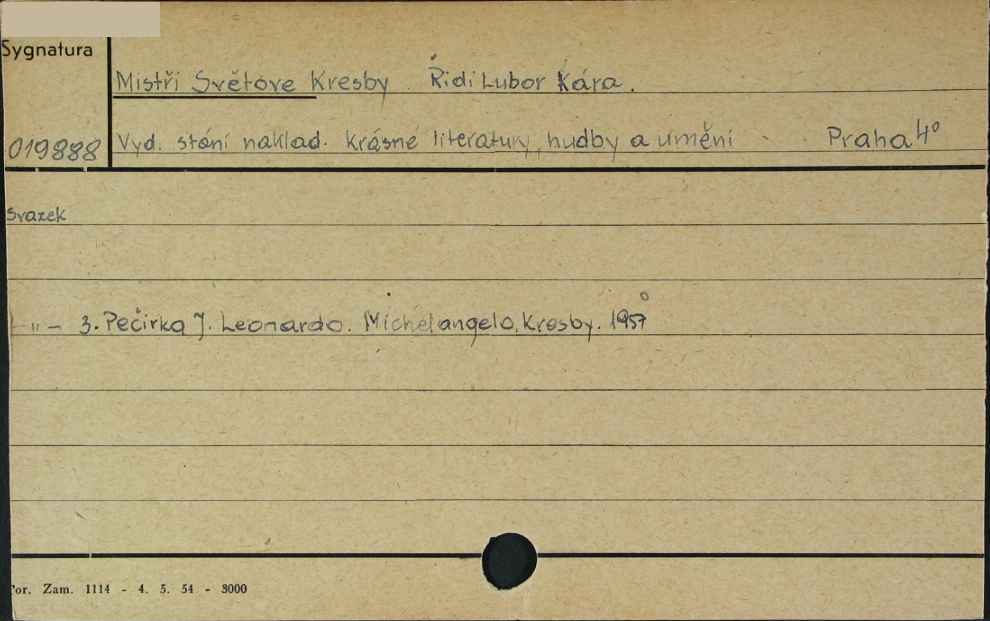 Sygnatura
Mistři Světove Kresby. Řidi Lubor Kára.
019888 Vyd. stání naklad. krásné literatury, hudby a umění Praha 4°
Svazek
-"- 3. Pečirka J. Leonardo. Michelangelo, Kresby. 1957
Zam. 1114 - 4. 5. 54 - 3000